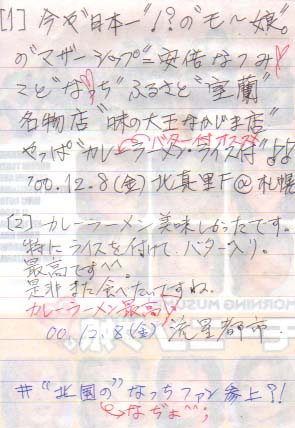 [1] 今や"日本一"!?の"モー娘"。
の"マザーシップ"=安倍なつみ
こと"なっち"ふるさと"室蘭"
名物店"味の大王なかじま店"
バター付オススメ
やっぱ"カレーラーメン・ライス付"♪♪
'00.12.8(金)北真里F@札幌
[2] カレーラーメン美味しかったです。
特にライスを付けて、バター入り。
最高です^^。
是非また食べたいですね。
カレーラーメン最高♪
00.12.8(金) 流星都市.
MORNING MUSU
#"北国の"なっちファン参上?!
なぢょ^^;